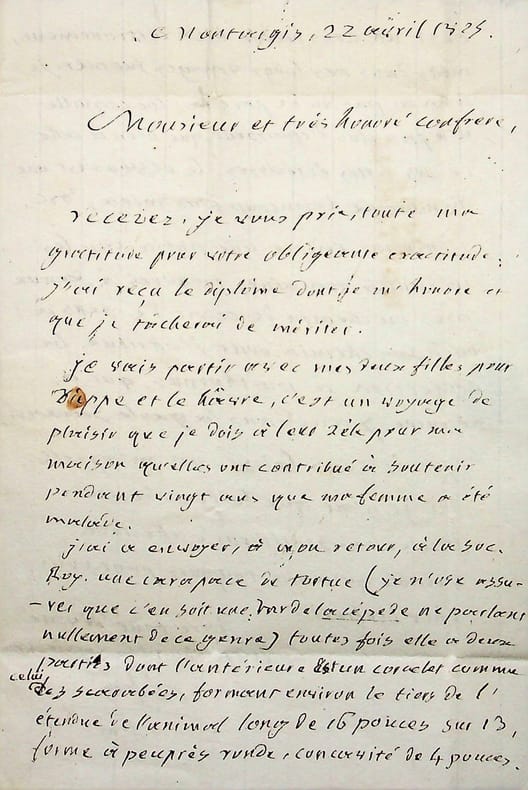 Montargis, 22 avril 1825.
Monsieur et très honoré confrere,
recevez, je vous prie, toute ma
gratitude pour votre obligeante exactitude.
j'ai reçu le diplôme dont je m'honore et
que je tâcherai de mériter.
je vais partir avec mes deux filles pour
Dieppe et le hâvre, c'est un voyage de
plaisir que je dois à leur zèle pour ma
maison qu'elles ont contribué à soutenir
pendant vingt ans que ma femme a été
malade.
j'ai a envoyer, à mon retour, à la soc.
Roy. une carapace de tortue (je n'ose assu-
-rer que c'en soit une, lacépède ne parlant
nullement de ce genre) toutes fois elle a deux
parties dont l'antérieure est un corcelet comme
celui des scarabées, formant environ le tiers de l'
étendue de l'animal long de 16 pouces sur 13,
forme à peuprès ronde, concavité de 4 pouces.